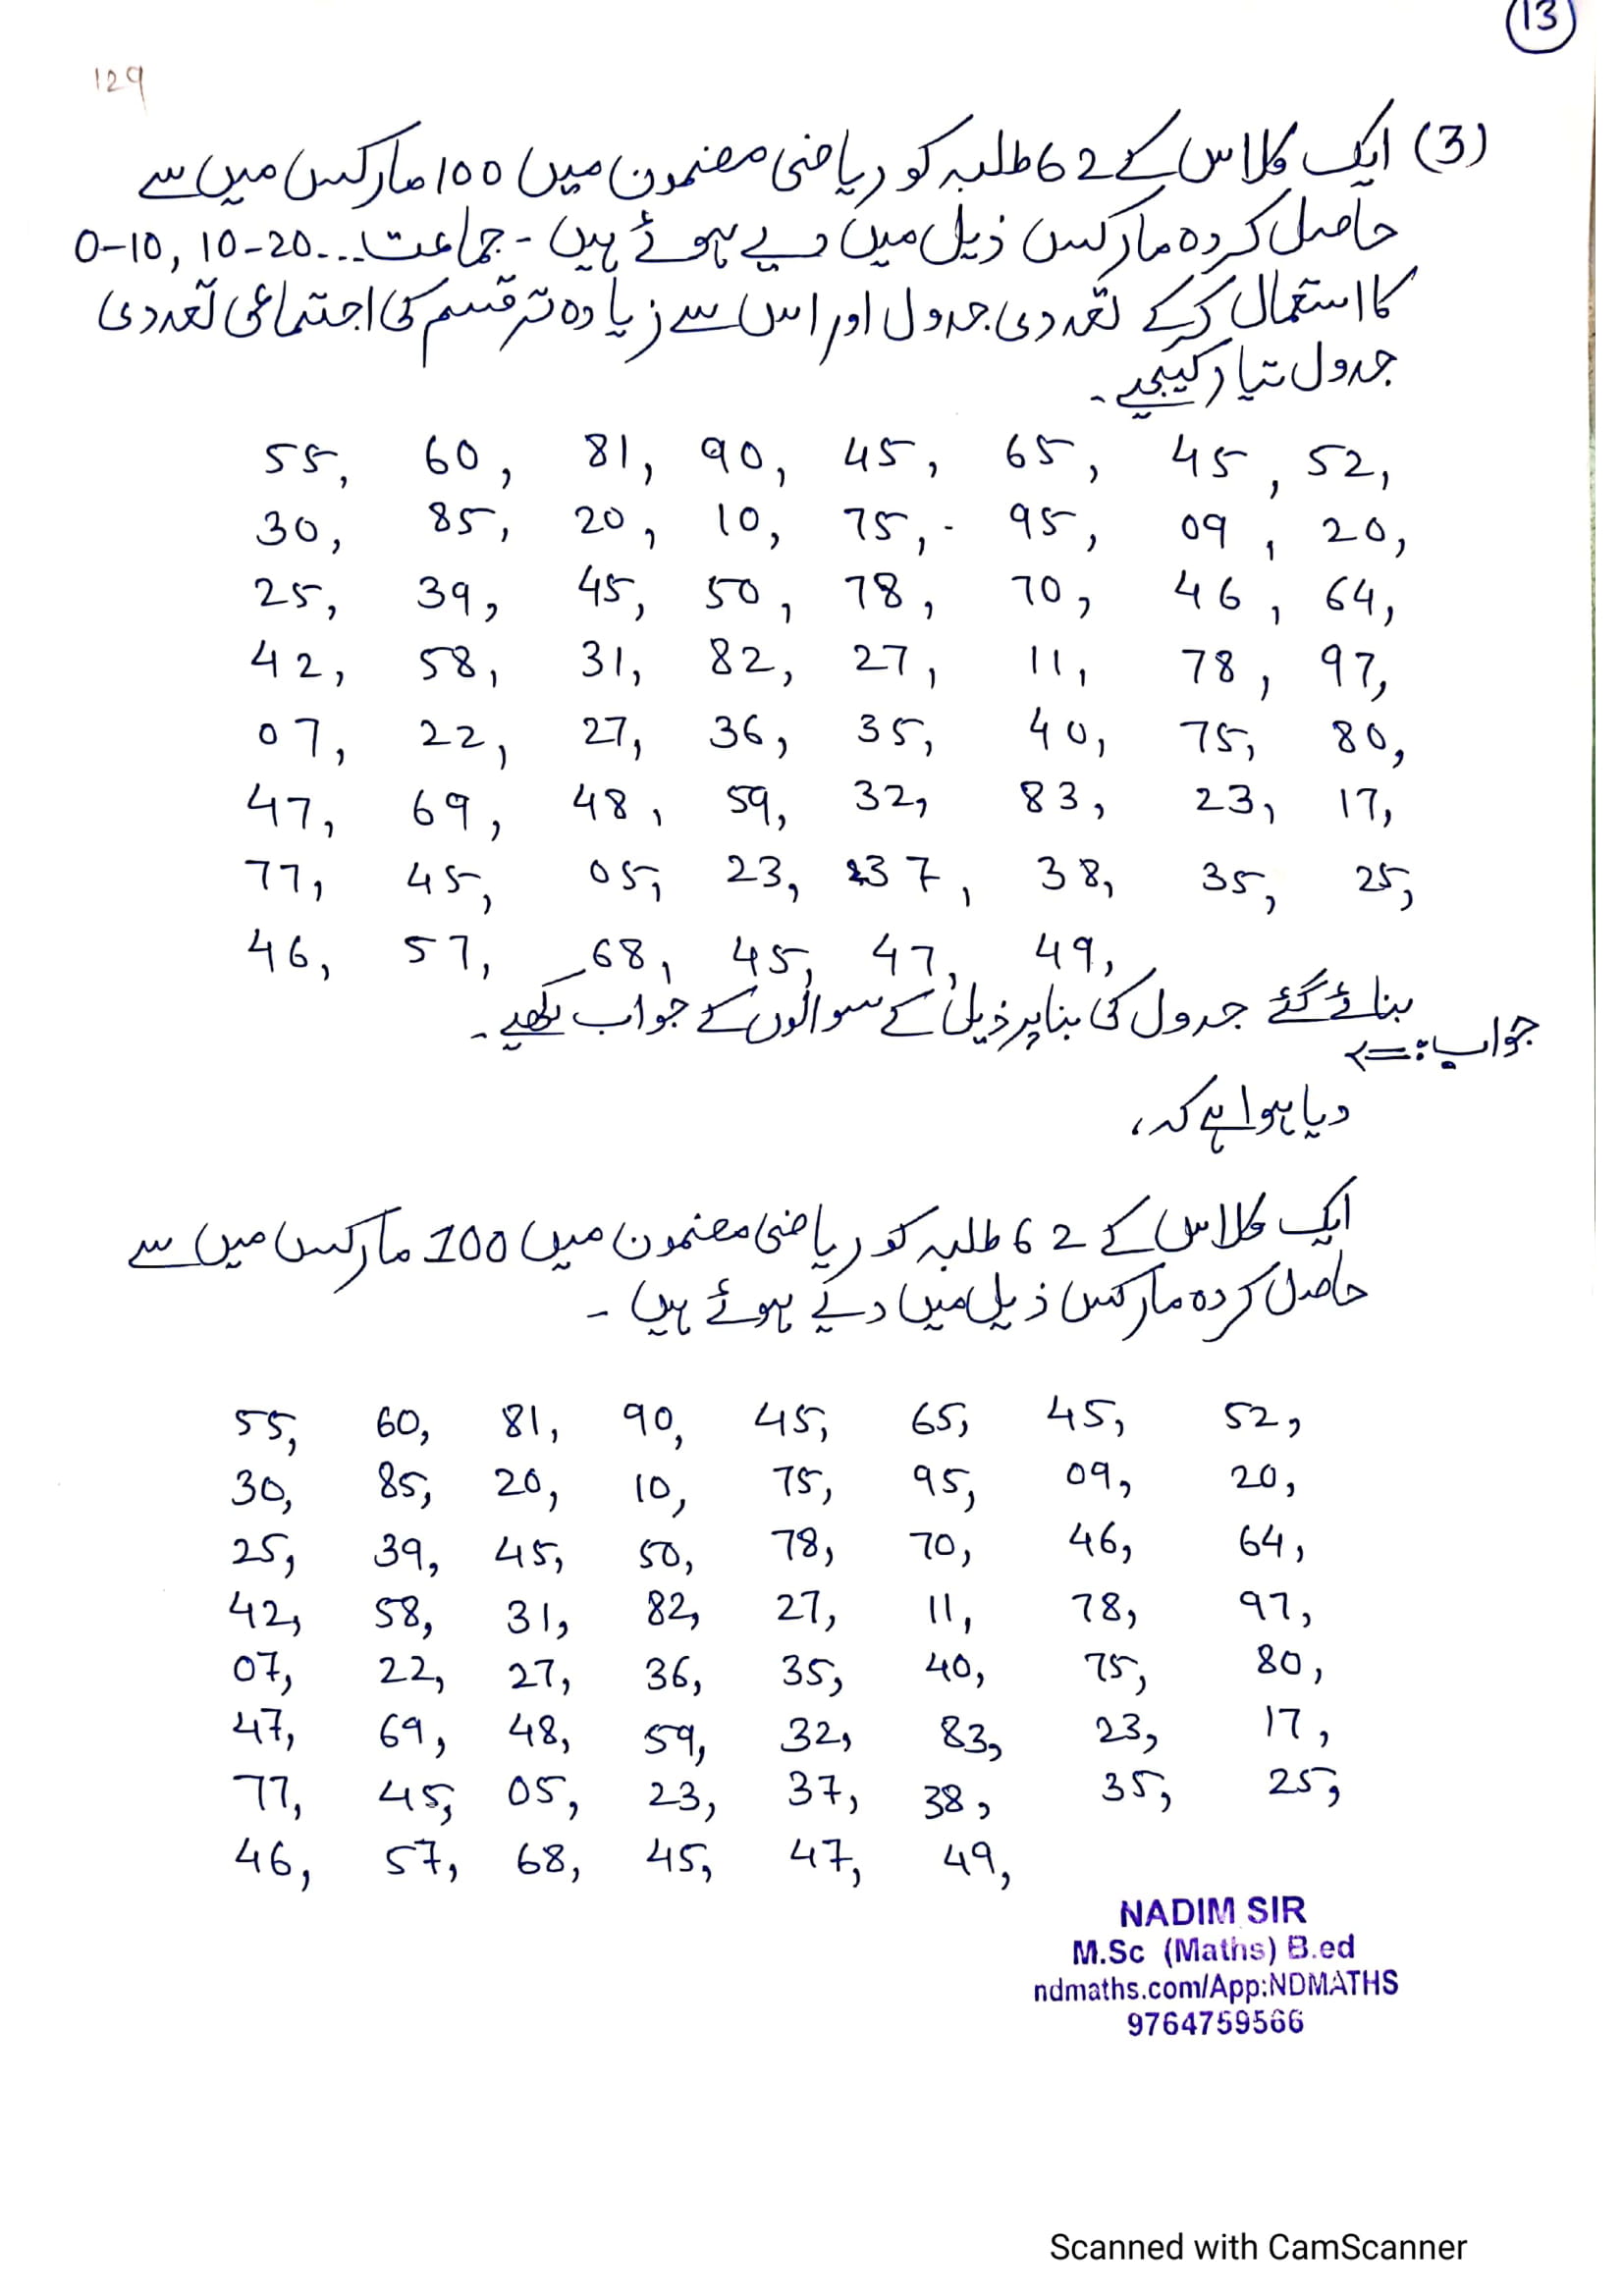 13
129
(3) ایک کلاس کے 62 طلبہ کو ریاضی مضمون میں 100 مارکس میں سے
حاصل کردہ مارکس ذیل میں دیے ہوئے ہیں - جماعت... 0-10, 10-20
کا استعمال کرکے تعددی جدول اور اس سے زیادہ تر قسم کی اجتماعی تعددی
جدول تیار کیجیے -
55, 60, 81, 90, 45, 65, 45, 52,
30, 85, 20, 10, 75, 95, 09, 20,
25, 39, 45, 50, 78, 70, 46, 64,
42, 58, 31, 82, 27, 11, 78, 97,
07, 22, 27, 36, 35, 40, 75, 80,
47, 69, 48, 59, 32, 83, 23, 17,
77, 45, 05, 23, 37, 38, 35, 25,
46, 57, 68, 45, 47, 49,
بنائے گئے جدول کی بنا پر ذیل کے سوالوں کے جواب لکھیے -
جواب :=>
دیا ہوا ہے کہ،
ایک کلاس کے 62 طلبہ کو ریاضی مضمون میں 100 مارکس میں سے
حاصل کردہ مارکس ذیل میں دئے ہوئے ہیں -
55, 60, 81, 90, 45, 65, 45, 52,
30, 85, 20, 10, 75, 95, 09, 20,
25, 39, 45, 50, 78, 70, 46, 64,
42, 58, 31, 82, 27, 11, 78, 97,
07, 22, 27, 36, 35, 40, 75, 80,
47, 69, 48, 59, 32, 83, 23, 17,
77, 45, 05, 23, 37, 38, 35, 25,
46, 57, 68, 45, 47, 49,
NADIM SIR
M.Sc (Maths) B.ed
ndmaths.com/App:NDMATHS
9764759566
Scanned with CamScanner